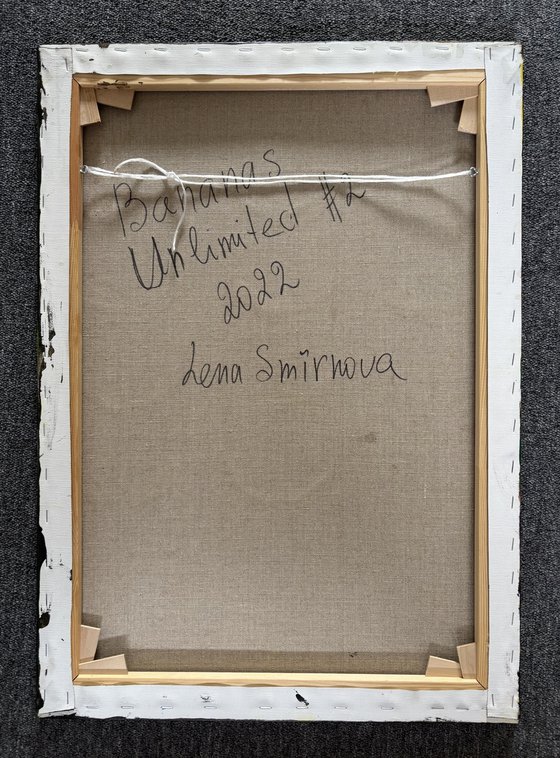 Bananas
Unlimited #2
2022
Lena Smirnova